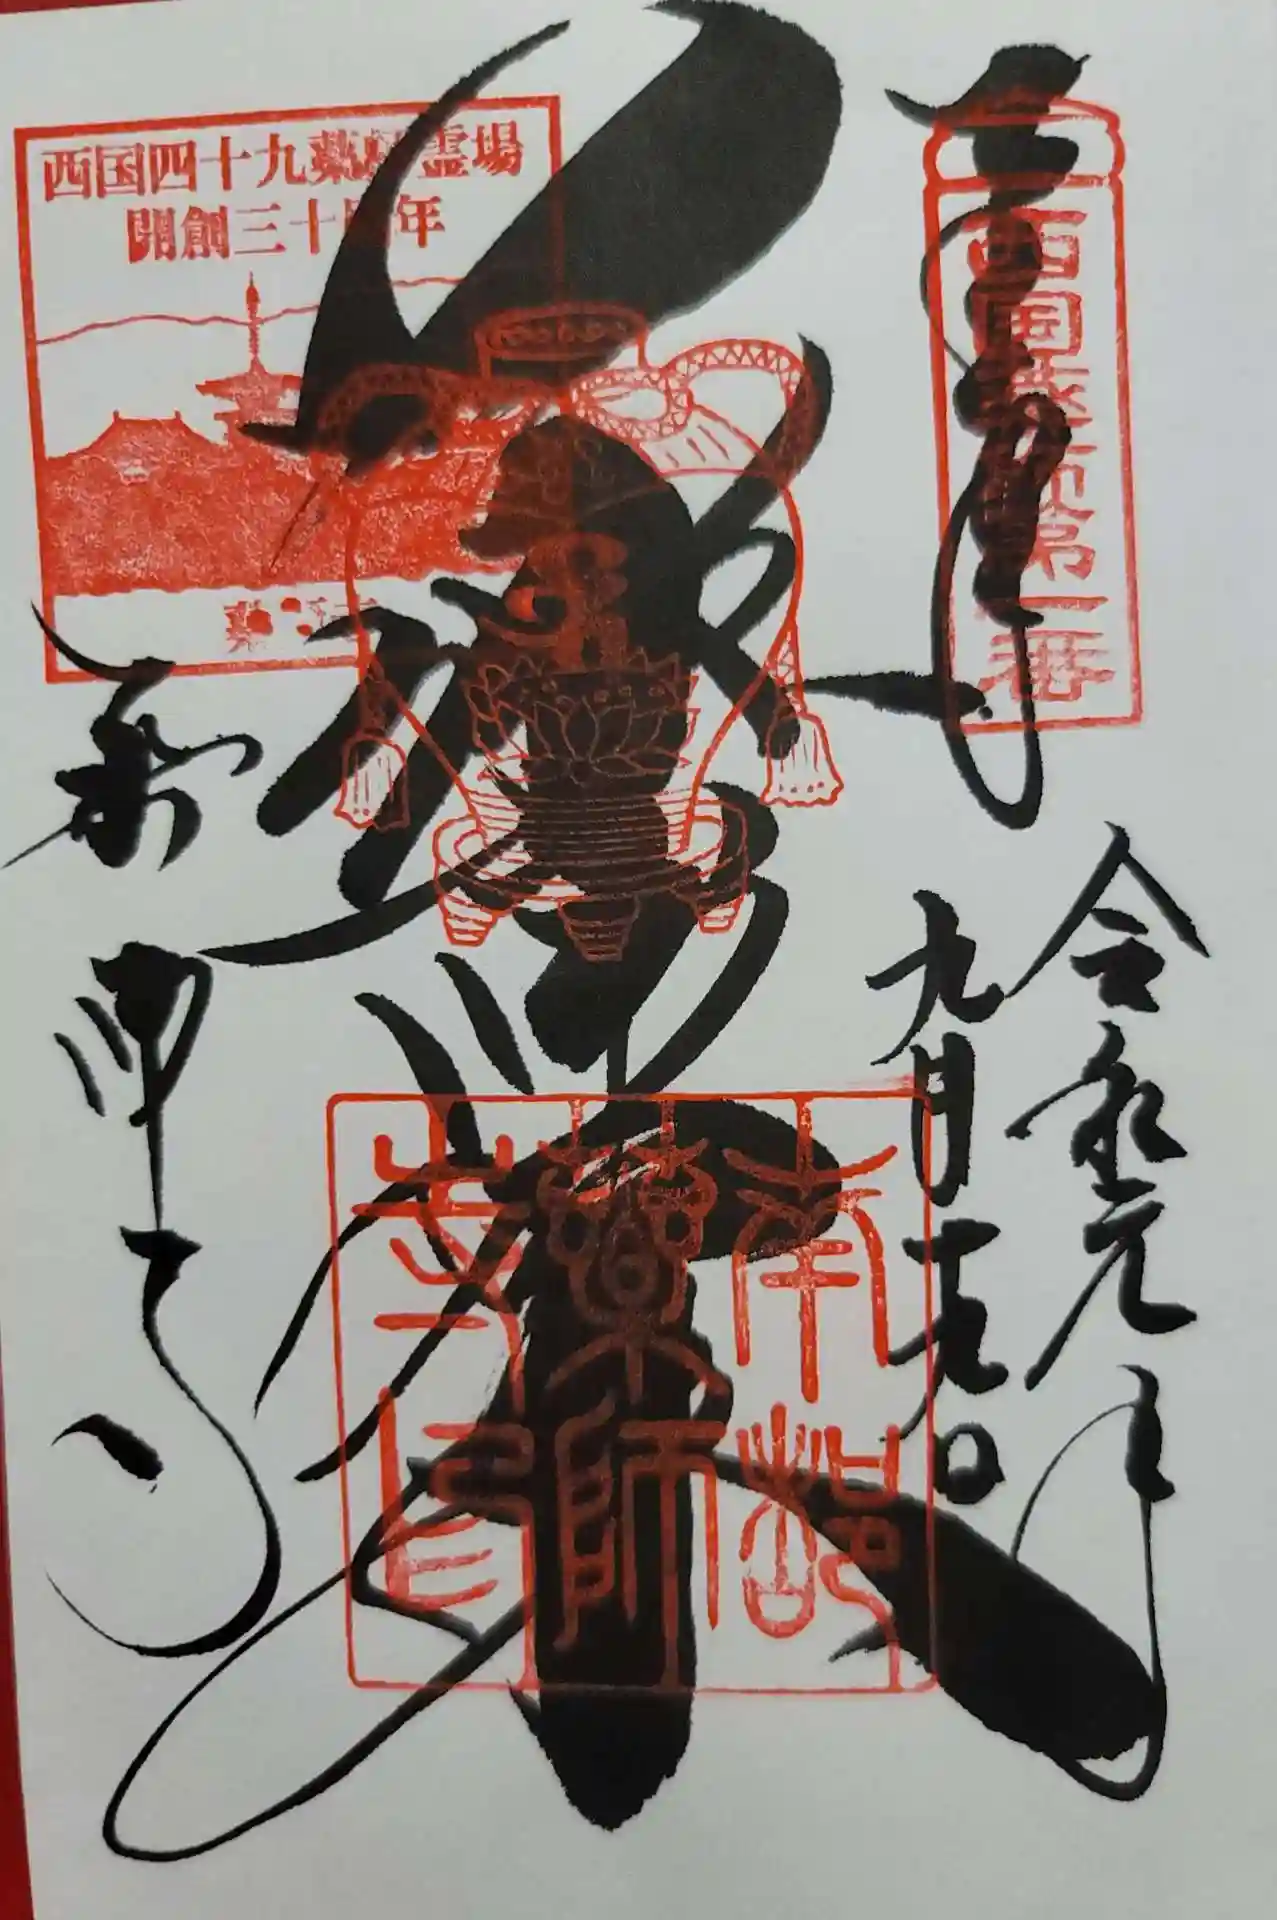 奉拝
西国薬師第一番
令和元年
九月十九日
薬師
南都薬師寺印
西国四十九薬師霊場
開創三十周年
薬師寺
薬師寺